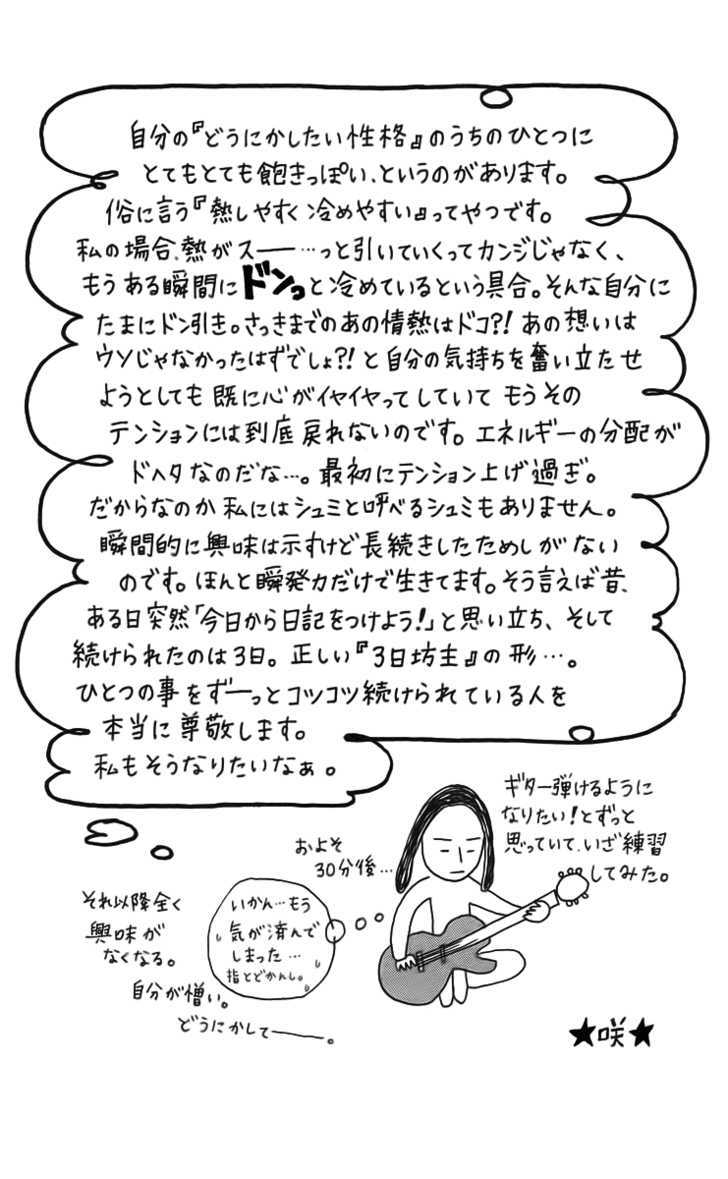 自分の『どうにかしたい性格』のうちのひとつに
とてもとても飽きっぽい、というのがあります。
俗に言う『熱しやすく冷めやすい』ってやつです。
私の場合、熱がスー――…っと引いていくってカンジじゃなく、
もうある瞬間にドンっと冷めているという具合。そんな自分に
たまにドン引き。さっきまでのあの情熱はドコ?! あの想いは
ウソじゃなかったはずでしょ?! と自分の気持ちを奮い立たせ
ようとしても既に心がイヤイヤってしていてもうその
テンションには到底戻れないのです。エネルギーの分配が
ドヘタなのだな…。最初にテンション上げ過ぎ。
だからなのか私にはシュミと呼べるシュミもありません。
瞬間的に興味は示すけど長続きしたためしがない
のです。ほんと瞬発力だけで生きてます。そう言えば昔、
ある日突然「今日から日記をつけよう!」と思い立ち、そして
続けられたのは3日。正しい『3日坊主』の形…。
ひとつの事をずーっとコツコツ続けられている人を
本当に尊敬します。
私もそうなりたいなぁ。
ギター弾けるように
なりたい!とずっと
思っていて、いざ練習
してみた。
およそ
30分後…
いかん…もう
気が済んで
しまった…
指とどかんし。
それ以降全く
興味が
なくなる。
自分が憎い。
どうにかして―――。
★咲★